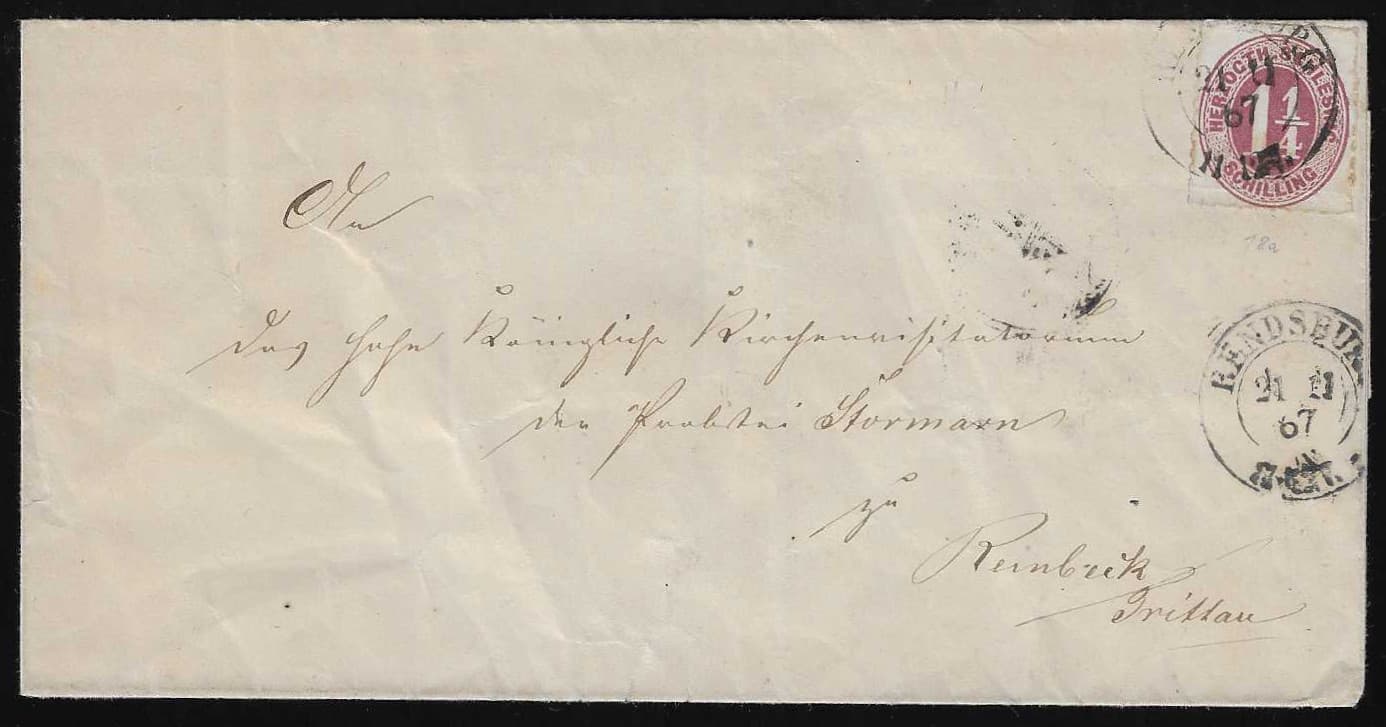 HERZOGTH. SCHLESWIG
1 1/4
SCHILLING
21 11
67
18a
An
das hohe Königliche Kirchenvisitatorium
der Probstei Stormarn
zu
Reinbeck
Trittau
RENDSBURG
21 11
67